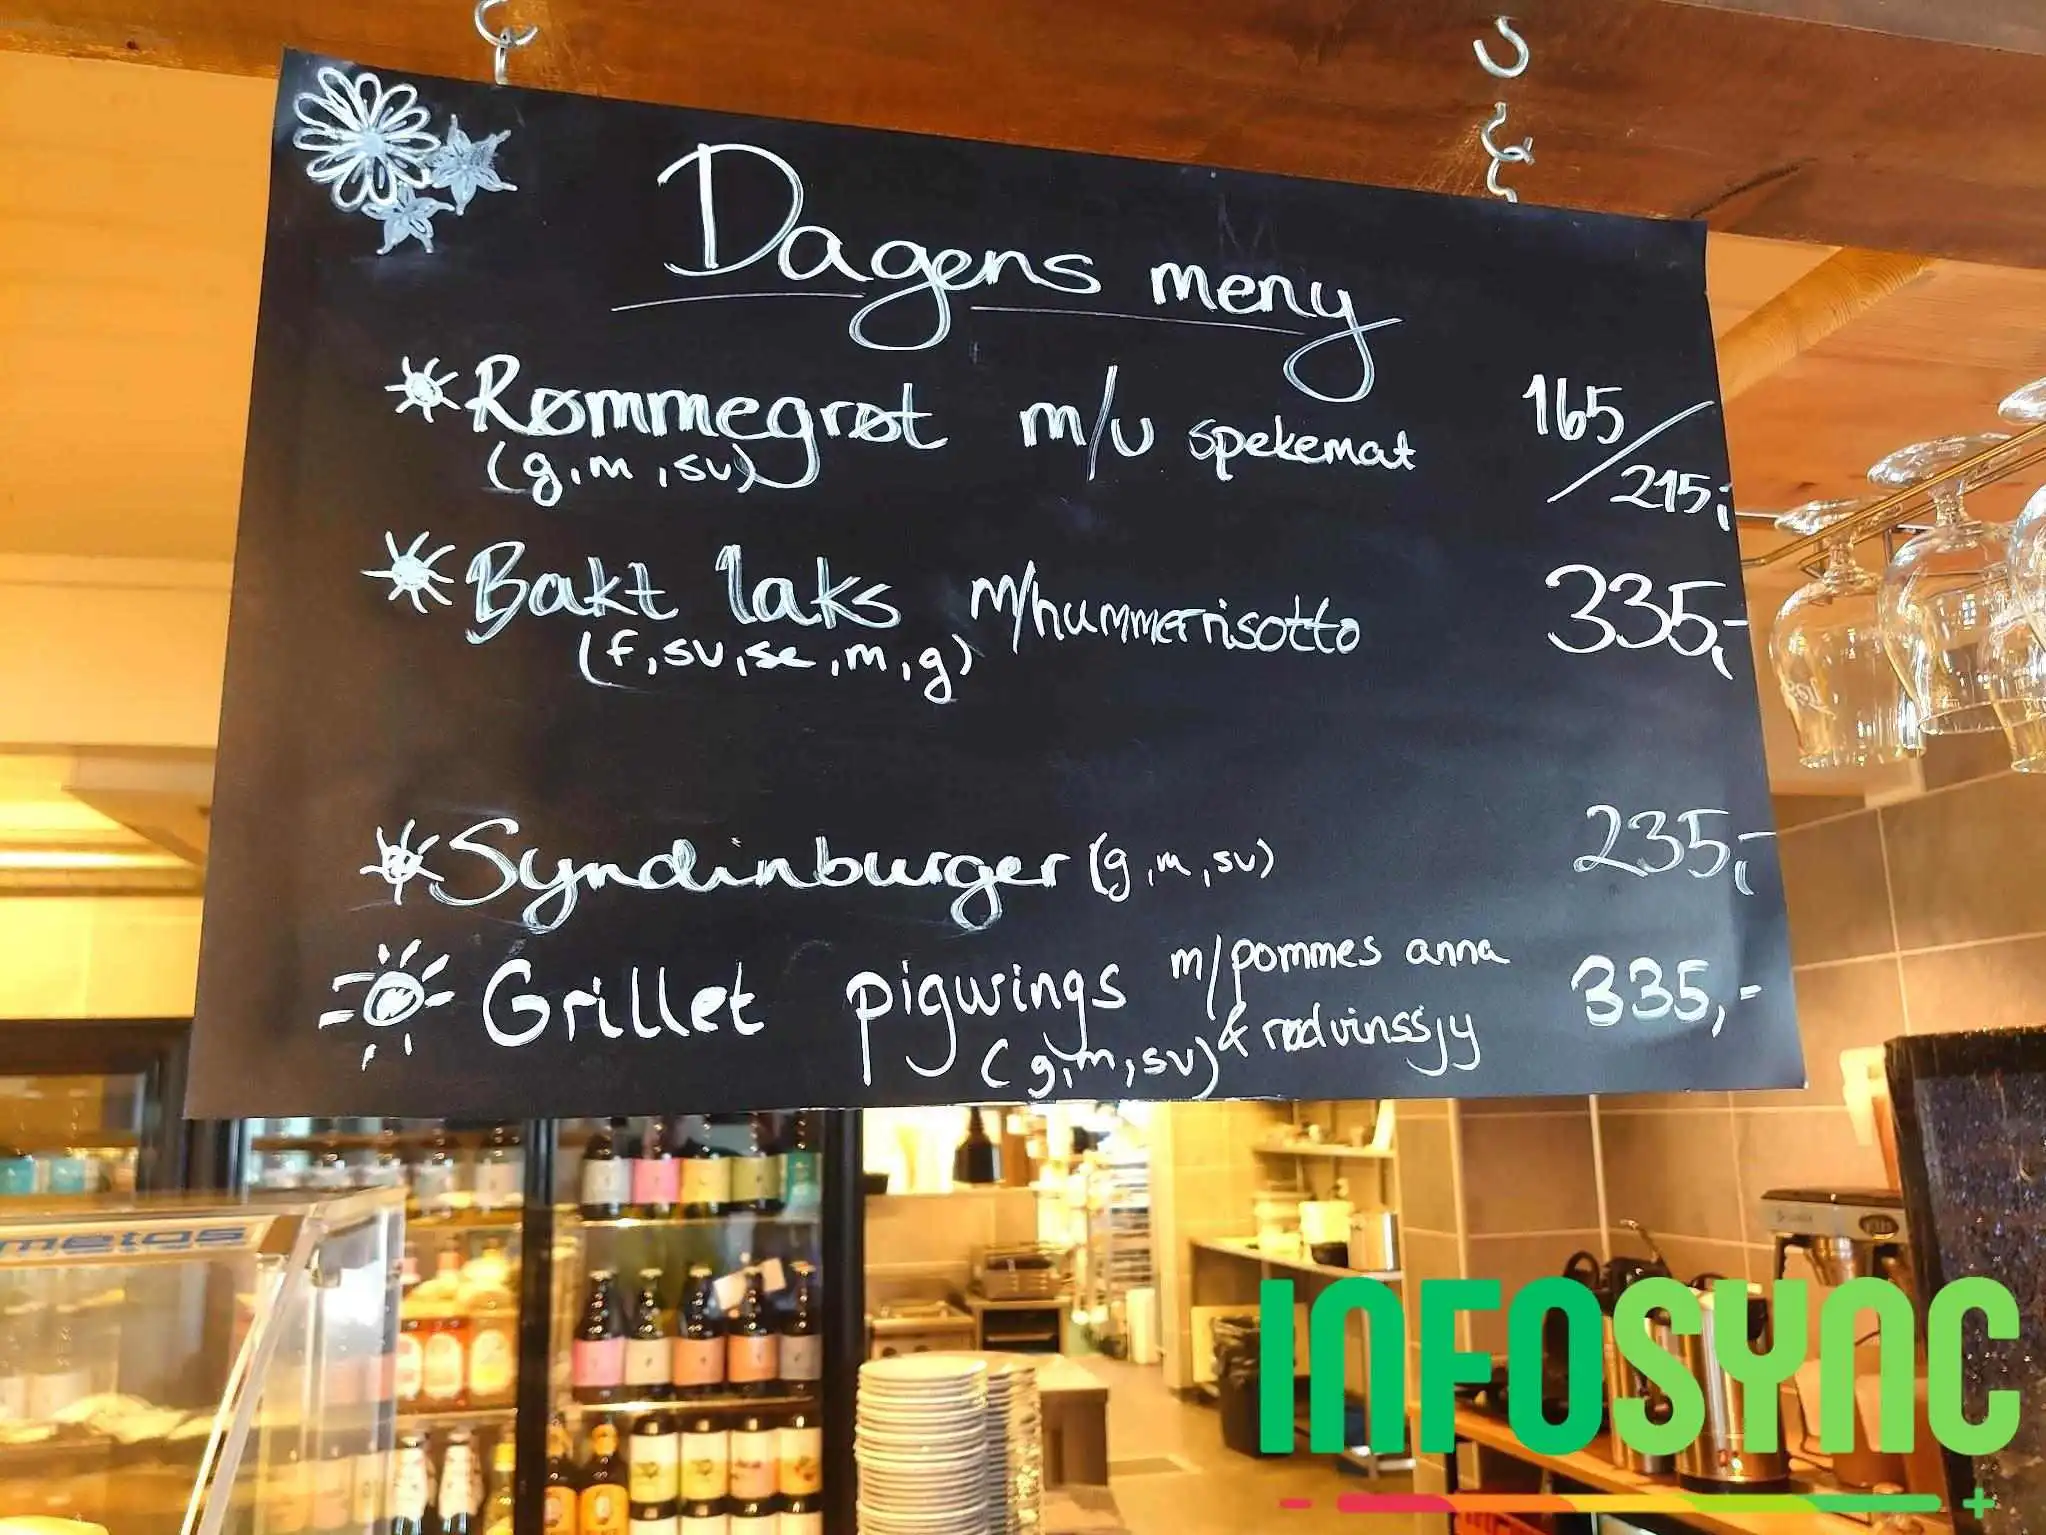 Dagens meny
Rømmegrøt m/u spekemat 165/215,-
(g,m,sv)
Bakt laks m/hummerrisotto 335,-
(f,sv,se,m,g)
Syndinburger (g,m,sv) 235,-
Grillet pigwings m/pommes anna 335,-
& rødvinssjy
(g,m,sv)
metos
INFOSYNC